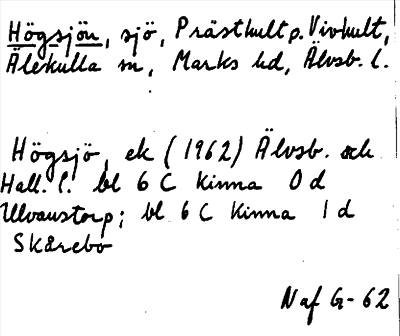 Högsjön, sjö, Prästhult o. Vivhult,
Älekulla sn, Marks hd, Älvsb. l.
Högsjö, ek (1962) Älvsb. och
Hall. l. bl 6 C Kinna 0 d
Ulvanstorp; bl 6 C Kinna 1 d
Skårebo
Naf G-62